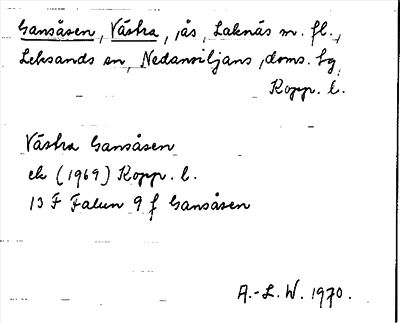 Gansåsen, Västra, ås, Laknäs m. fl.,
Leksands sn, Nedansiljans doms. tg,
Kopp. l.
Västra Gansåsen
ek (1969) Kopp. l.
13 F Falun 9 f Gansåsen
A.-L. W. 1970.